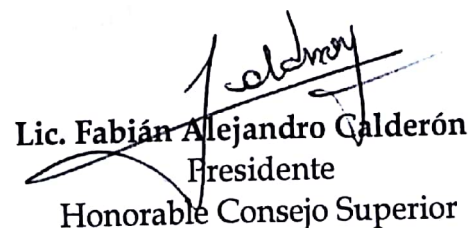 Lic. Fabián Alejandro Calderón
Presidente
Honorable Consejo Superior